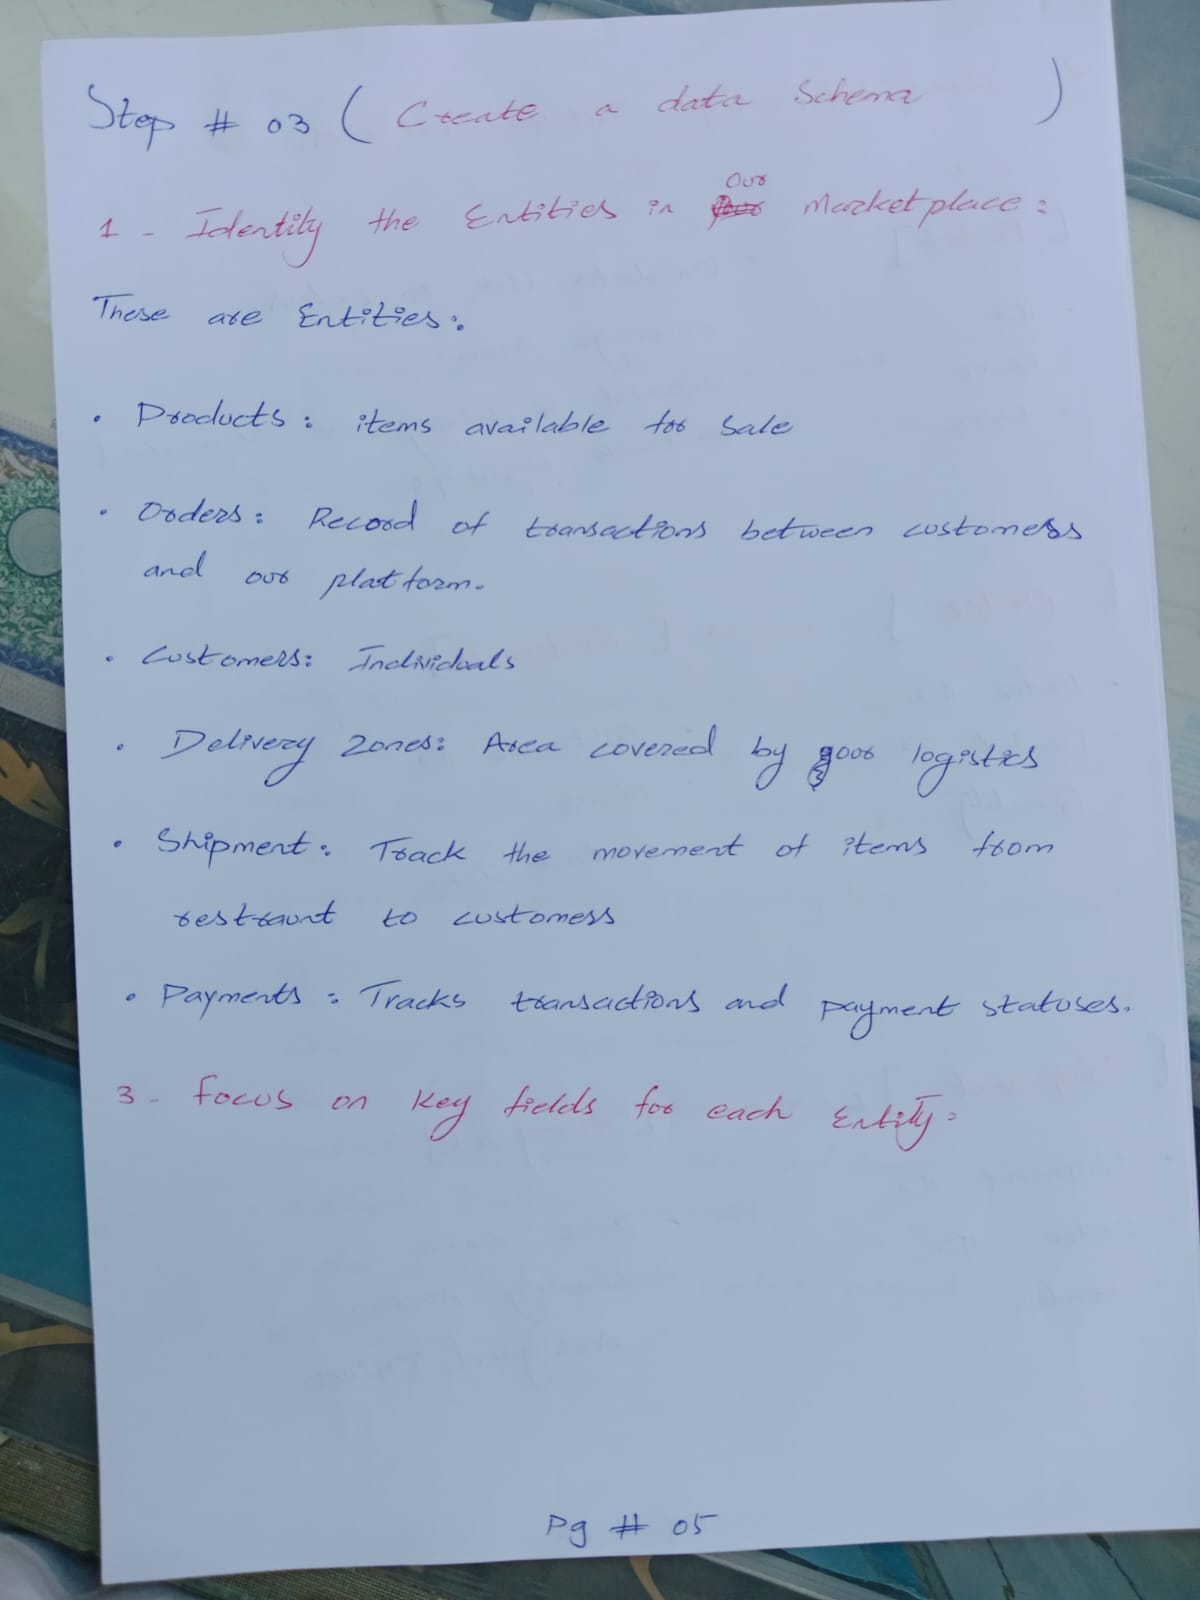 Step # 03 ( Create a data Schema )
1 - Identity the Entities in Our Marketplace:
These are Entities:
• Products: items available for Sale
• Orders: Record of transactions between customers
and our platform.
• Customers: Individuals
• Delivery Zones: Area covered by our logistics
• Shipment: Track the movement of items from
restraunt to customers
• Payments: Tracks transactions and payment statuses.
3 - Focus on Key fields for each Entity:
Pg # 05